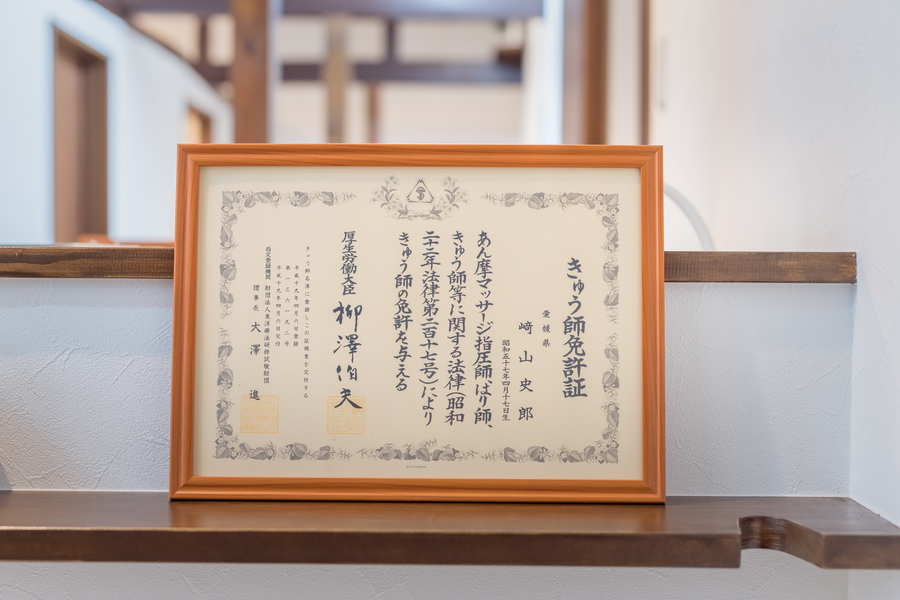 きゅう師免許証
愛媛県
崎山史郎
昭和五十七年四月十七日生
あん摩マッサージ指圧師、はり師、
きゅう師等に関する法律(昭和
二十二年法律第二百十七号)により
きゅう師の免許を与える
厚生労働大臣 柳澤伯夫
きゅう師名簿に登録しこの証明書を交付する
平成十九年四月六日登録
第一三六一九二号
平成十九年四月六日交付
指定登録機関 財団法人東洋療法研修試験財団
理事長 大澤 進